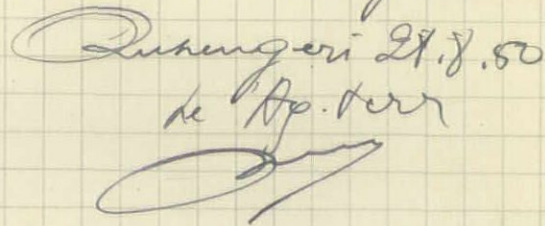 Ruhengeri 28.8.50
Le Ag. terr